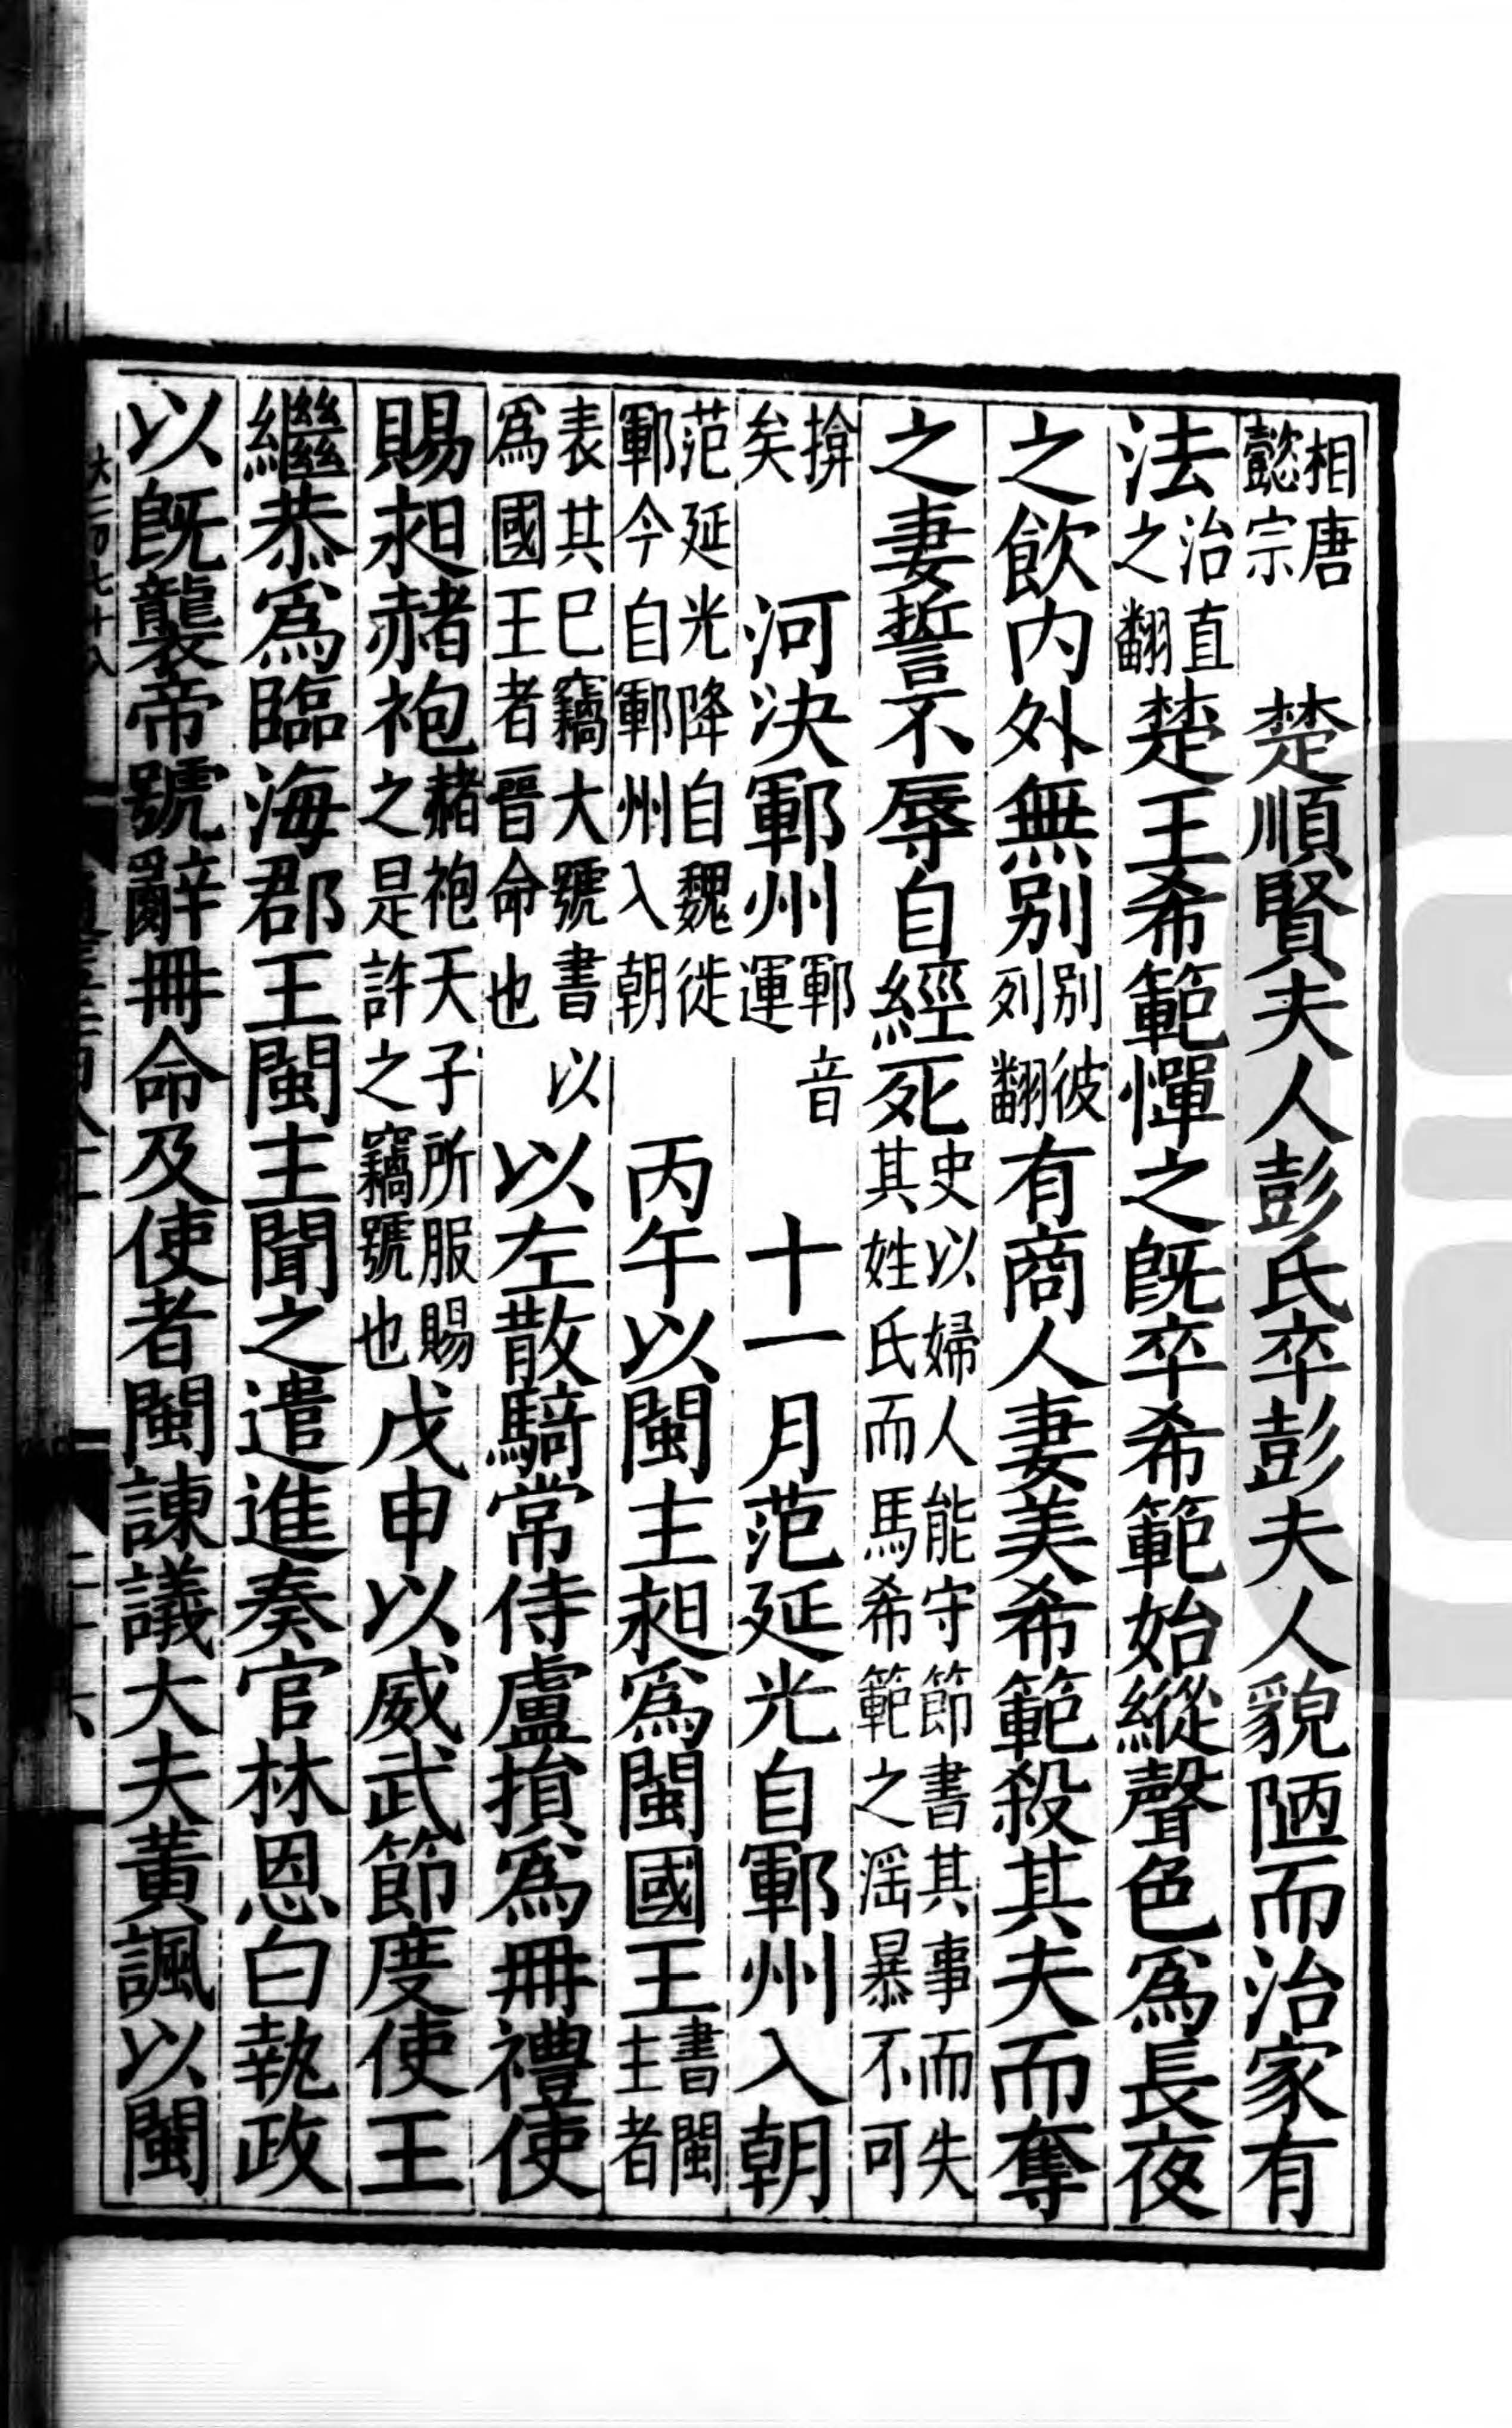 相唐懿宗　楚順賢夫人彭氏卒彭夫人貌陋而治家有
法治直之翻楚王希範憚之旣卒希範始縱聲色爲長夜
之飮内外無别别彼列翻有商人妻美希範殺其夫而奪
之妻誓不辱自經死史以婦人能守節書其事而失其姓氏而馬希範之滛暴不可
揜矣　河决鄆州鄆音運　十一月范延光自鄆州入朝
范延光降自魏徙鄆今自鄆州入朝　丙午以閩主昶爲閩國王書閩主者
表其巳竊大號書以爲國王者晉命也　以左散騎常侍盧損爲冊禮使
賜昶赭袍赭袍天子所服賜之是許之竊號也戊申以威武節度使王
繼恭爲臨海郡王閩主聞之遣進奏官林恩白執政
以旣襲帝號辭冊命及使者閩諫議大夫黃諷以閩